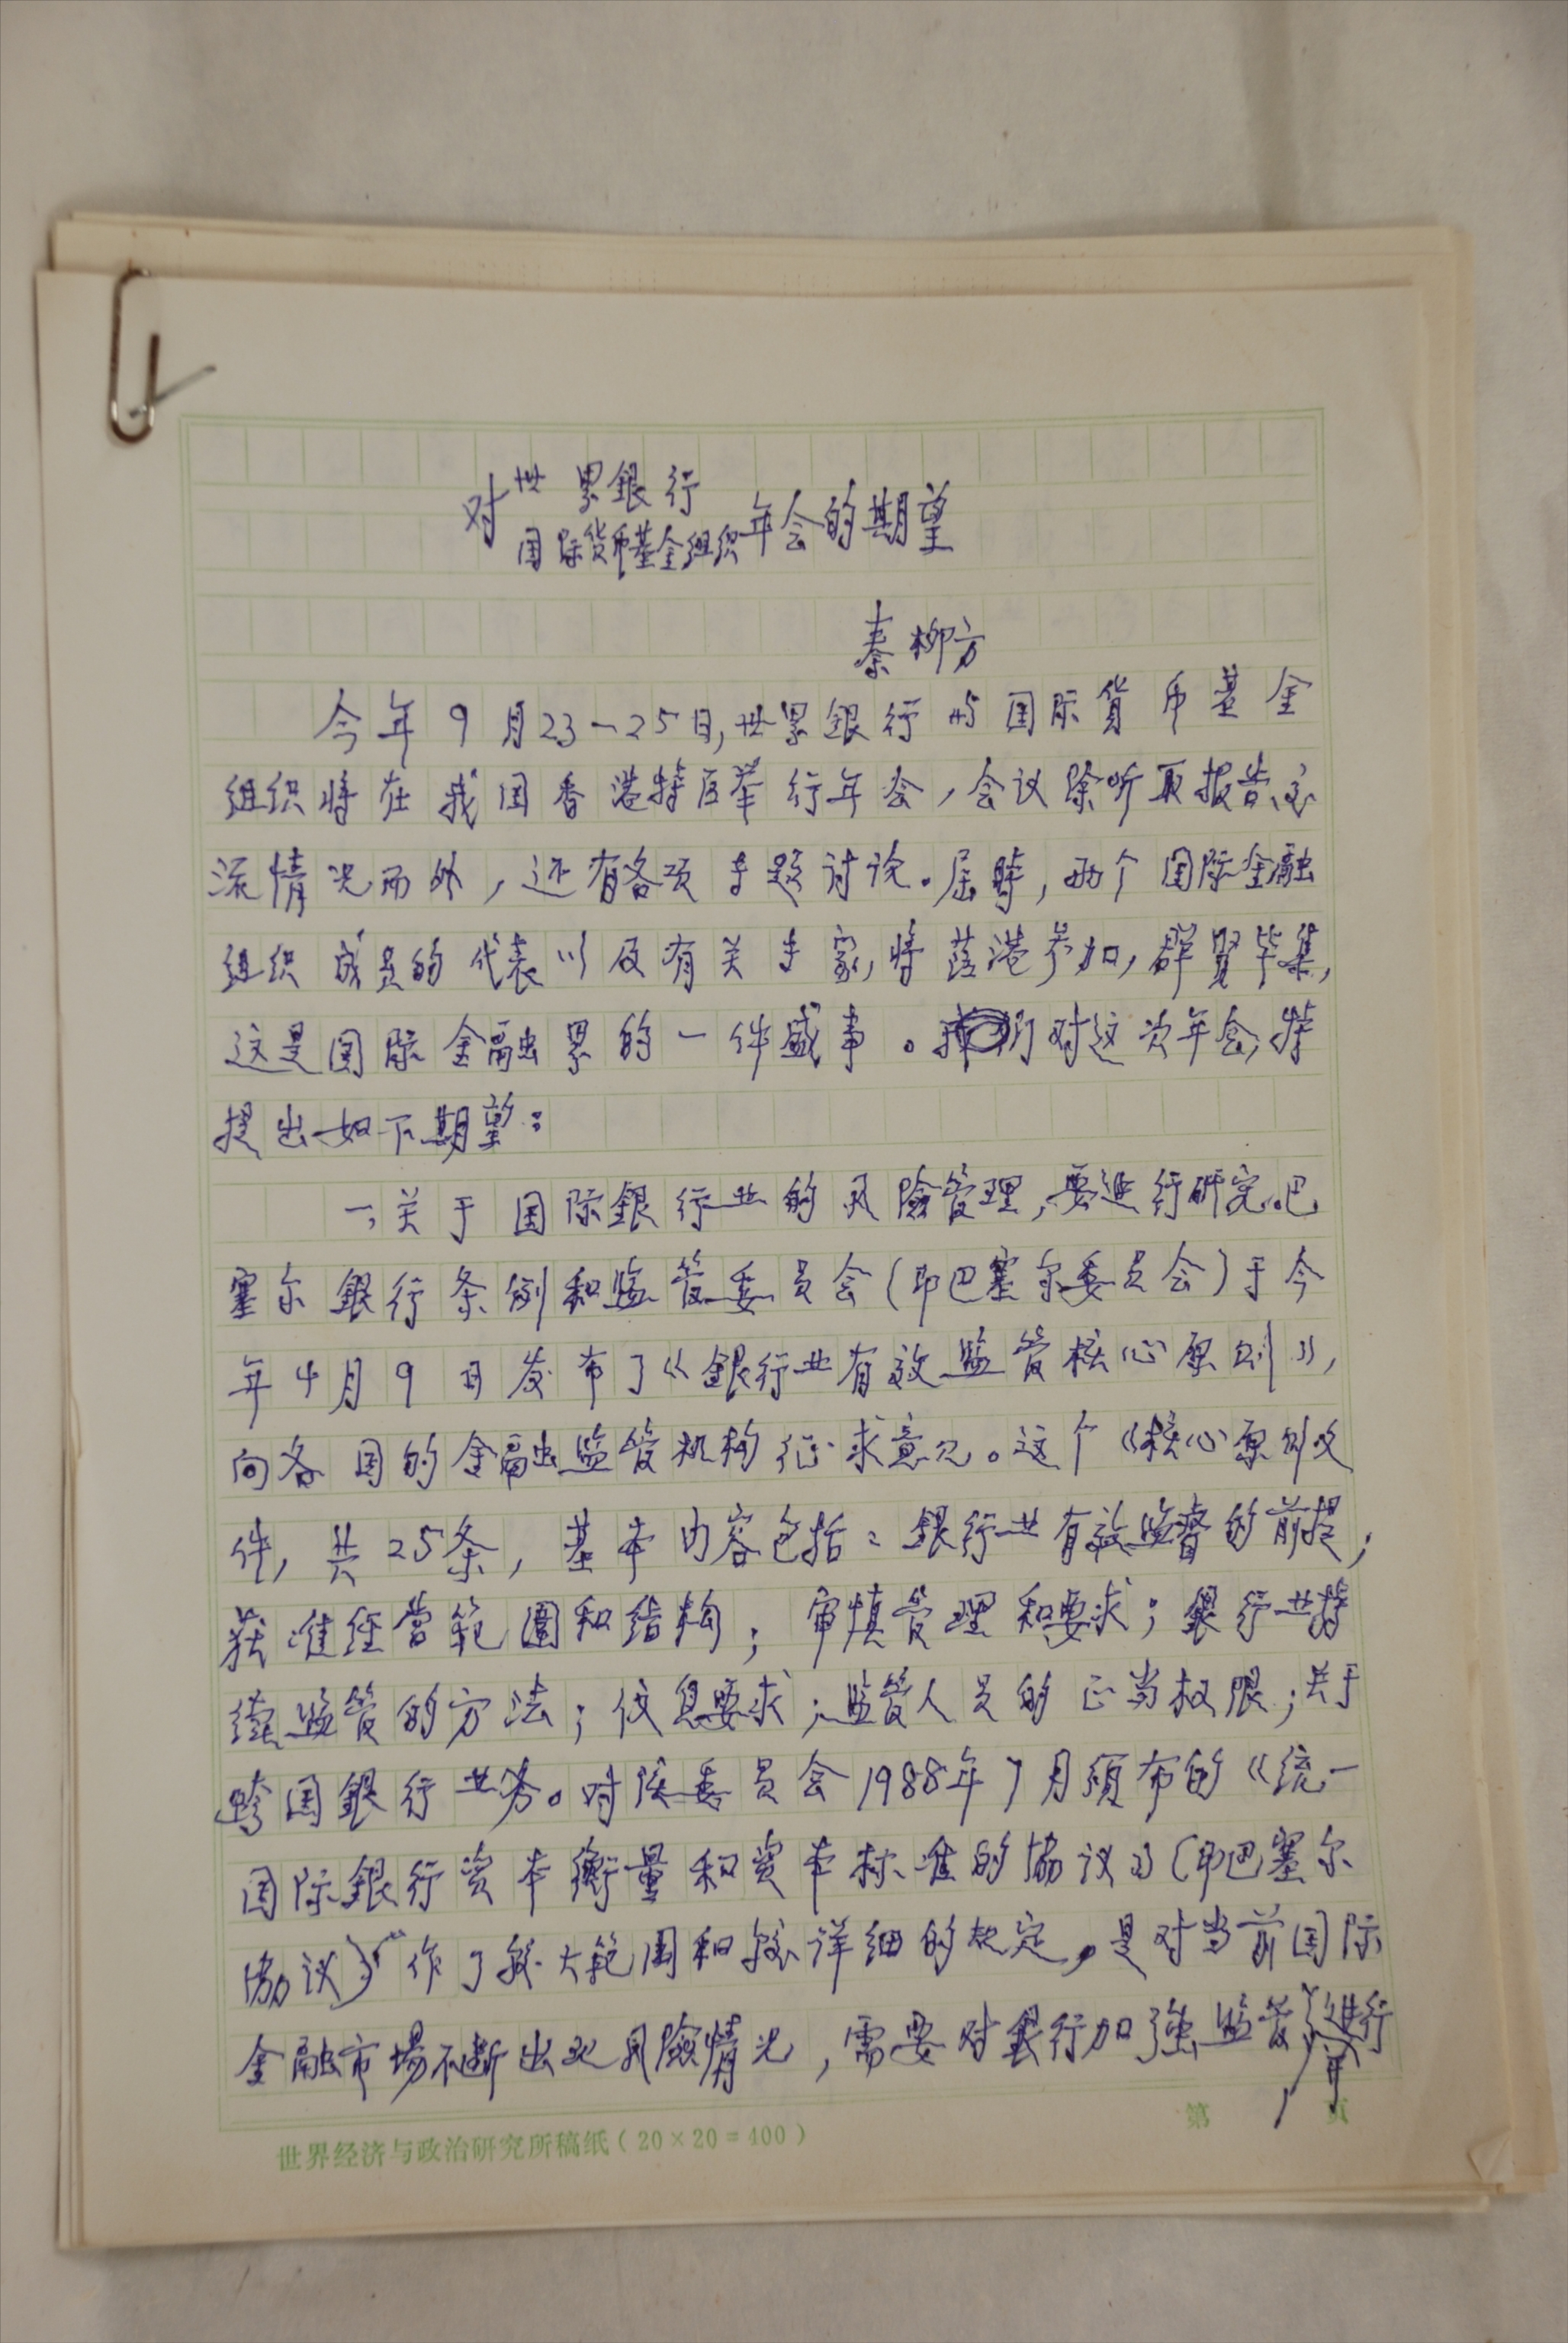 对世界銀行
国际货币基金组织年会的期望
秦柳方
今年9月23—25日,世界銀行与国际货币基金
组织将在我国香港特区举行年会,会议除听取报告、交
流情况而外,还有各项专题讨论。届時,两个国际金融
组织成员的代表以及有关专家,将莅港参加,群贤毕集,
这是国际金融界的一件盛事。我们对这次年会,特
提出如下期望:
一,关于国际銀行业的风險管理,要进行研究。巴
塞尔銀行条例和监管委员会(即巴塞尔委员会)于今
年4月9日发布了《銀行业有效监管核心原则》,
向各国的金融监管机构征求意见。这个《核心原则》文
件,共25条,基本内容包括:銀行业有效监督的前提;
获准经营範圍和结构;审慎管理和要求;銀行业持
续监管的方法;信息要求;监管人员的正当权限;关于
跨国銀行业务。对该委员会1988年7月颁布的《统一
国际銀行资本衡量和资本标准的協议》(即巴塞尔
協议)作了较大範围和较详细的规定,是对当前国际
金融市場不断出现风險情况,需要对銀行加强监管,进行
世界经济与政治研究所稿纸(20×20=400)
第 页